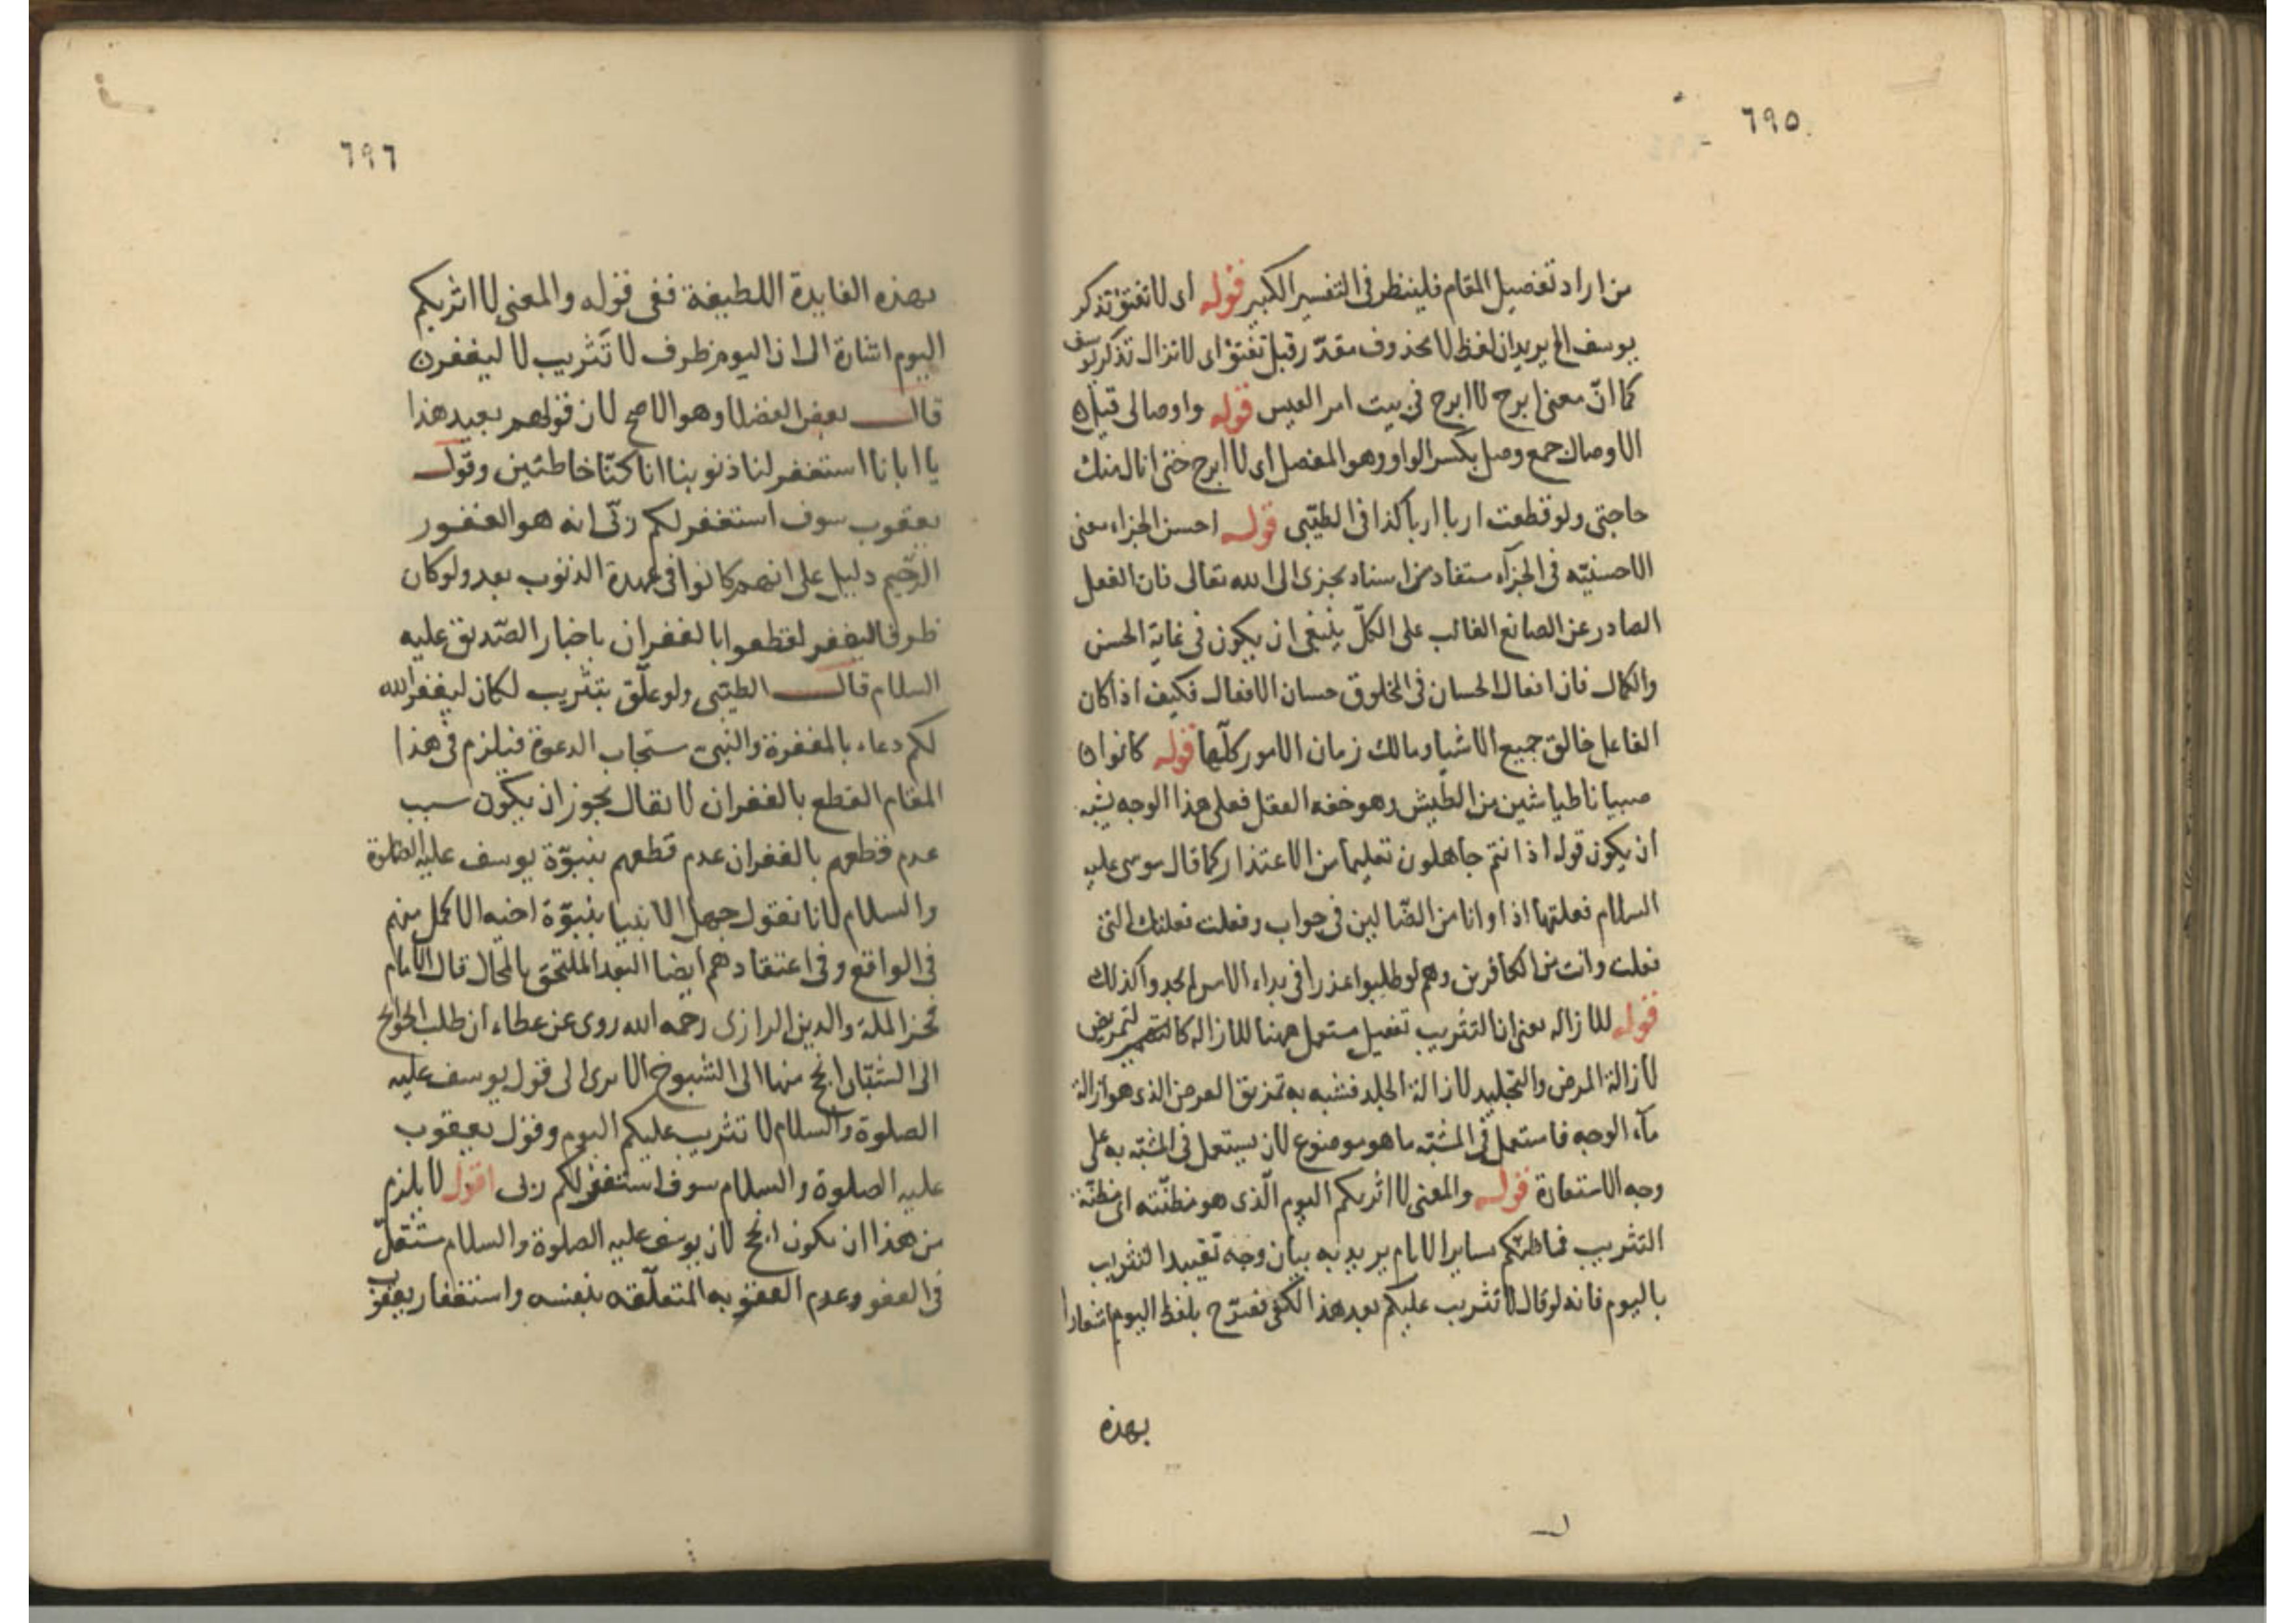 ٦٩٥
من اراد تفصيل المقام فلينظر فى التفسير الكبير قوله اى لا تفتؤ تذكر
يوسف الخ يريد ان لفظ لا محذوف مقدّر قبل تفتؤ اى لا تزال تذكر يوسف
كما انّ معنى ابرح لا ابرح فى بيت امر القيس قوله واوصالى قيل
الاوصال جمع وصل بكسر الواو وهو المفصل اى لا ابرح حتى انال منك
حاجتى ولو قطعت اربا اربا كذا فى الطيّبى قوله احسن الجزاء معنى
الاحسنيّه فى الجزآء مستفاد من اسناد يجزى الى الله تعالى فان الفعل
الصادر عن الصانع الغالب على الكلّ ينبغى ان يكون فى غاية الحسن
والكمال فان افعال الحسان فى المخلوق حسان الافعال فكيف اذا كان
الفاعل خالق جميع الاشيا ومالك زمان الامور كلّها قوله كانوا
صبيانا طياشين من الطيش وهو خفه العقل فعلى هذا الوجه يشبه
ان يكون قوله اذ انتم جاهلون تعليما من الاعتذار كما قال موسى عليه
السلام فعلتها اذا وانا من الضّالين فى جواب وفعلت فعلتك التى
فعلت وانت من الكافرين وهم لو طلبوا عذرا فى براء الامر لم يجدوا كذلك
قوله للازاله يعنى ان التثريب تفعيل مستعمل ههنا للازاله كالتمريض
لازالة المرض والتجليد لازالة الجلد فشبه به تمزيق العرض الذى هو ازالة
مآء الوجه فاستعمل فى المشبّه ما هو موضوع لان يستعمل فى المشبّه به على
وجه الاستعارة قوله والمعنى لا اثربكم اليوم الّذى هو مظنّته اى مظنّة
التثريب فما ظنكم بساير الايام يريد به بيان وجه تقييد التثريب
باليوم فانه لو قال لا تثريب عليكم بعد هذا لكفى فصرّح بلفظ اليوم اشعارا
بهذه
٦٩٦
بهذه الفايدة اللطيفة ففى قوله والمعنى لا اثربكم
اليوم اشارة الى ان اليوم ظرف لا تثريب لا ليغفر
قال بعض الفضلا وهو الاصح لان قولهم بعيد هذا
يا ابانا استغفر لنا ذنوبنا انا كنّا خاطئين وقول
يعقوب سوف استغفر لكم ربّى انه هو الغفور
الرّحيم دليل على انهم كانوا فى عهدة الذنوب بعد ولو كان
ظرفا ليغفر لقطعوا بالغفران باخبار الصّديق عليه
السلام قال الطيّبى ولو علّق بتثريب لكان ليغفر الله
لكم دعاء بالمغفرة والنبى مستجاب الدعوة فيلزم فى هذا
المقام القطع بالغفران لا يقال يجوز ان يكون سبب
عدم قطعهم بالغفران عدم قطعهم بنبوّة يوسف عليه الصلوة
والسلام لانا نقول جهل الانبيا بنبوّة اخيه الاكمل منهم
فى الواقع وفى اعتقادهم ايضا البعد الملتحق بالمحال قال الامام
فخر الملة والدين الرازى رحمه الله روى عن عطاء ان طلب الحوايج
الى الشبّان انجح منها الى الشيوخ الا يرى الى قول يوسف عليه
الصلوة والسلام لا تثريب عليكم اليوم وقول يعقوب
عليه الصلوة والسلام سوف استغفر لكم ربى اقول لا يلزم
من هذا ان يكون انجح لان يوسف عليه الصلوة والسلام مستقلّ
فى العفو وعدم العقوبه المتعلّقه بنفسه واستغفار يعقوب